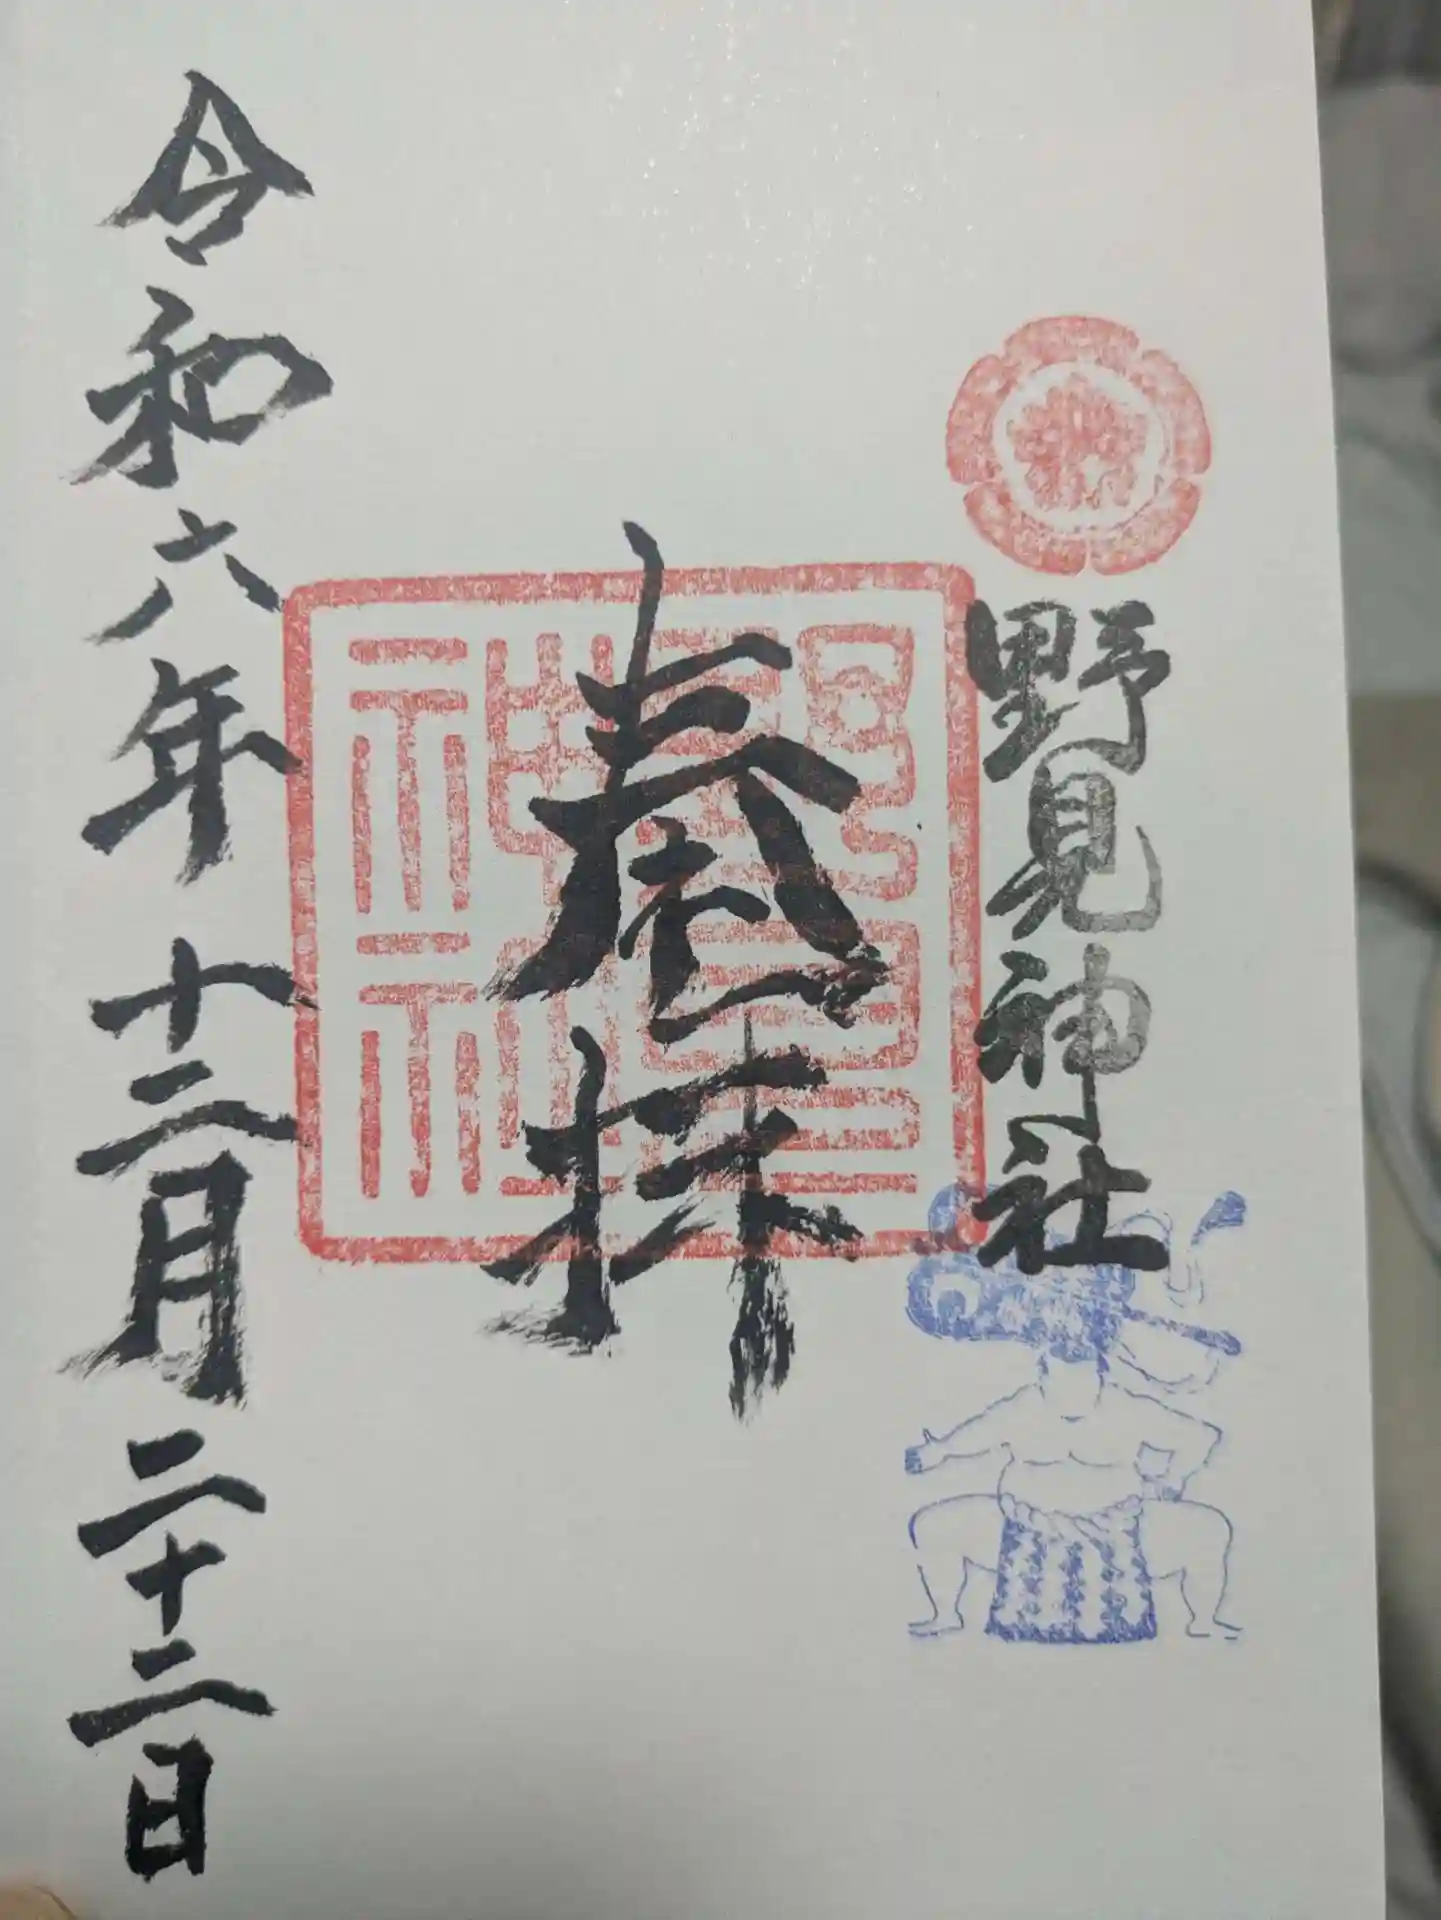 野見神社
奉拝
令和六年十二月二十二日
野見神社